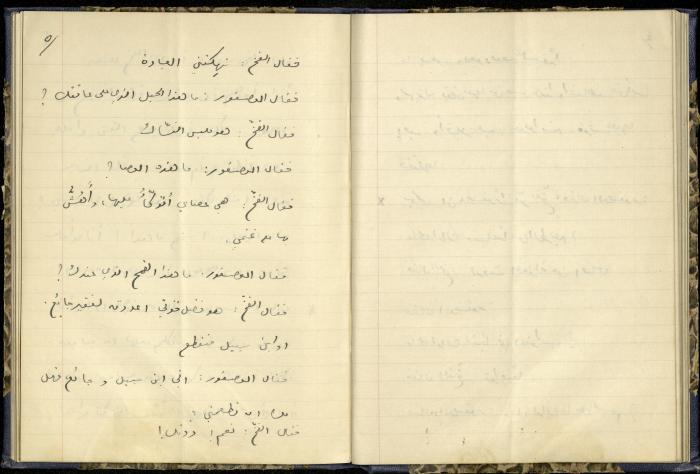 ٥/
فقال الفخ: نهكتني العبادة
فقال العصفور: ما هذا الحبل الذي على عاتقك؟
فقال الفخّ: هو ملبس النسّاك
فقال العصفور: ما هذه العصا؟
فقال الفخّ: هي عصاي أتوكّأ عليها، وأهُشُّ
بها على غنمي.
فقال العصفور: ما هذا القمح الذي عندك؟
فقال الفخّ: هو فضل قوتي اعددته لفقير جائع.
او ابن سبيل منقطع
فقال العصفور: اني ابن سبيل و جائع فهل
لك ان تطعمني؟
فقال الفخّ: نعم! دونك!